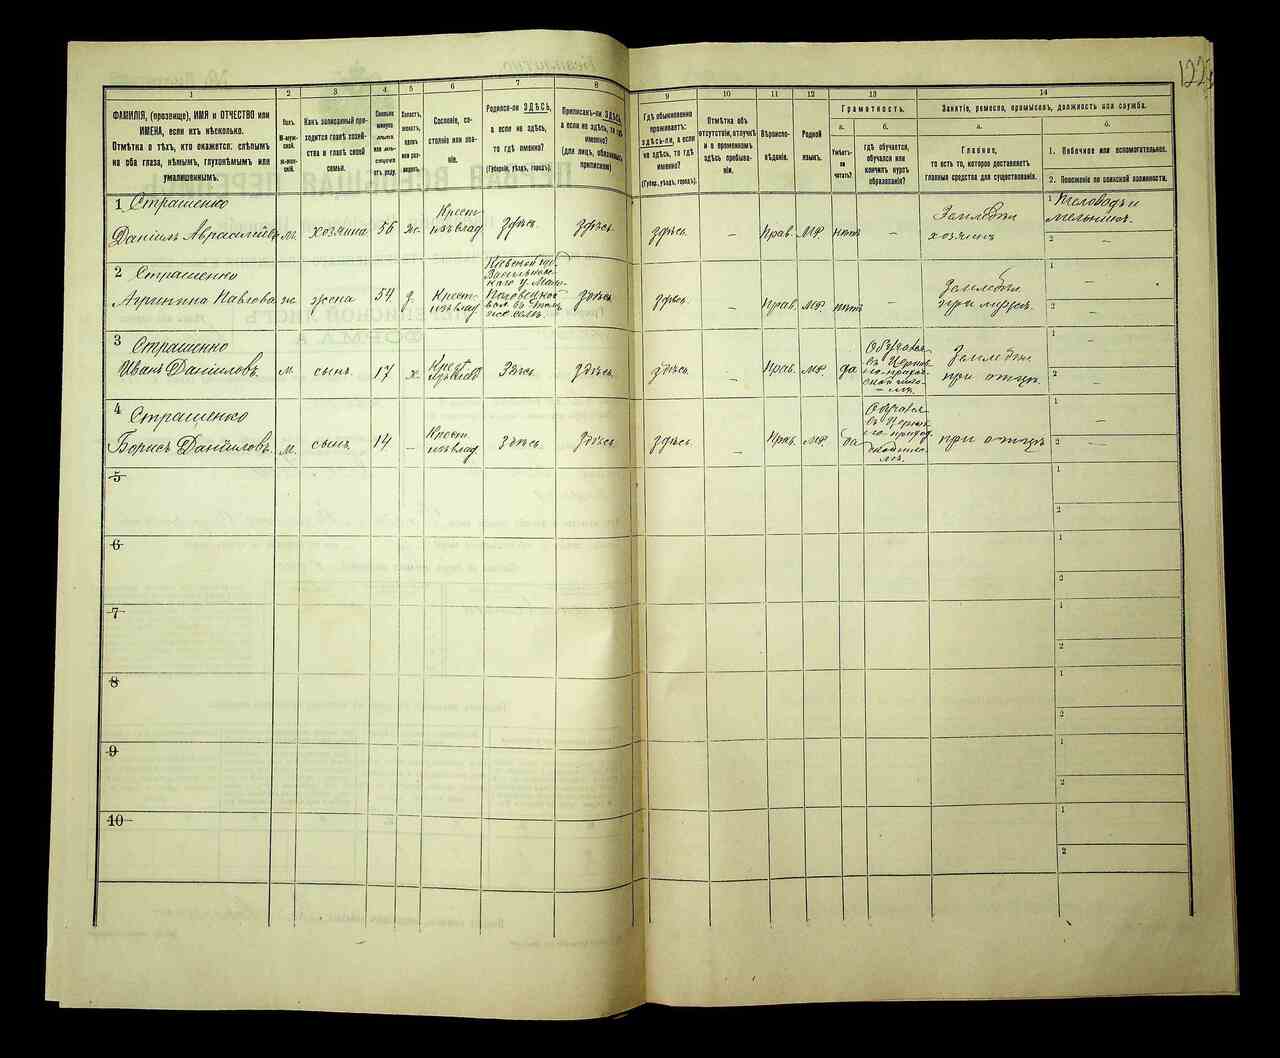 122
1 2 3 4 5 6 7 8 9 10 11 12 13 14
ФАМИЛІЯ, (прозвище), ИМЯ и ОТЧЕСТВО или
ИМЕНА, если ихъ нѣсколько.
Отмѣтка о тѣхъ, кто окажется: слѣпымъ
на оба глаза, нѣмымъ, глухонѣмымъ или
умалишеннымъ.
Полъ.
М-муж-
ской.
Ж-жен-
скій.
Какъ записанный при-
ходится главѣ хозяй-
ства и главѣ своей
семьи.
Сколько
минуло
лѣтъ
или мѣ-
сяцевъ
отъ роду.
Холостъ,
женатъ,
вдовъ
или раз-
веденъ.
Сословіе, со-
стояніе или зва-
ніе.
Родился-ли ЗДѢСЬ,
а если не здѣсь,
то гдѣ именно?
(Губернія, уѣздъ, городъ).
Приписанъ-ли ЗДѢСЬ,
а если не здѣсь, то гдѣ
именно?
(для лицъ, обязанныхъ
припискою)
Гдѣ обыкновенно
проживаетъ:
здѣсь-ли, а если
не здѣсь, то гдѣ
именно?
(Губер., уѣздъ, городъ).
Отмѣтка объ
отсутствіи, отлучкѣ
и о временномъ
здѣсь пребыва-
ніи.
Вѣроиспо-
вѣданіе.
Родной
языкъ.
Грамотность.
а. б.
Умѣетъ-
ли
читать?
гдѣ обучается,
обучался или
кончилъ курсъ
образованія?
Занятіе, ремесло, промыселъ, должность или служба.
а. б.
Главное,
то есть то, которое доставляетъ
главныя средства для существованія.
1. Побочное или вспомогательное.
2. Положеніе по воинской повинности.
1 Страшенко
Даніилъ м. хозяинъ 56 ж. Крест. изъ влад. здѣсь здѣсь здѣсь – Прав. МР нѣтъ – Земледѣл. хозяинъ 1 Пчеловодъ и мельникъ. 2 –
2 Страшенко
Агрипина Павлова ж жена 54 Крест. изъ влад. Кіевской губ. здѣсь здѣсь – Прав. МР нѣтъ Земледѣл. при мужѣ. 1 – 2 –
3 Страшенко
Иванъ Даніиловъ. м. сынъ. 17 х. Крест. здѣсь здѣсь здѣсь – Прав. МР да Обучался Земледѣл. при отцѣ. 1 – 2 –
4 Страшенко
Борисъ Даніиловъ. м. сынъ. 14 – Крест. изъ влад. здѣсь здѣсь здѣсь. – Прав. МР да Обучался при отцѣ 1 – 2 –
5 1 2
6 1 2
7 1 2
8 1 2
9 1 2
10 1 2